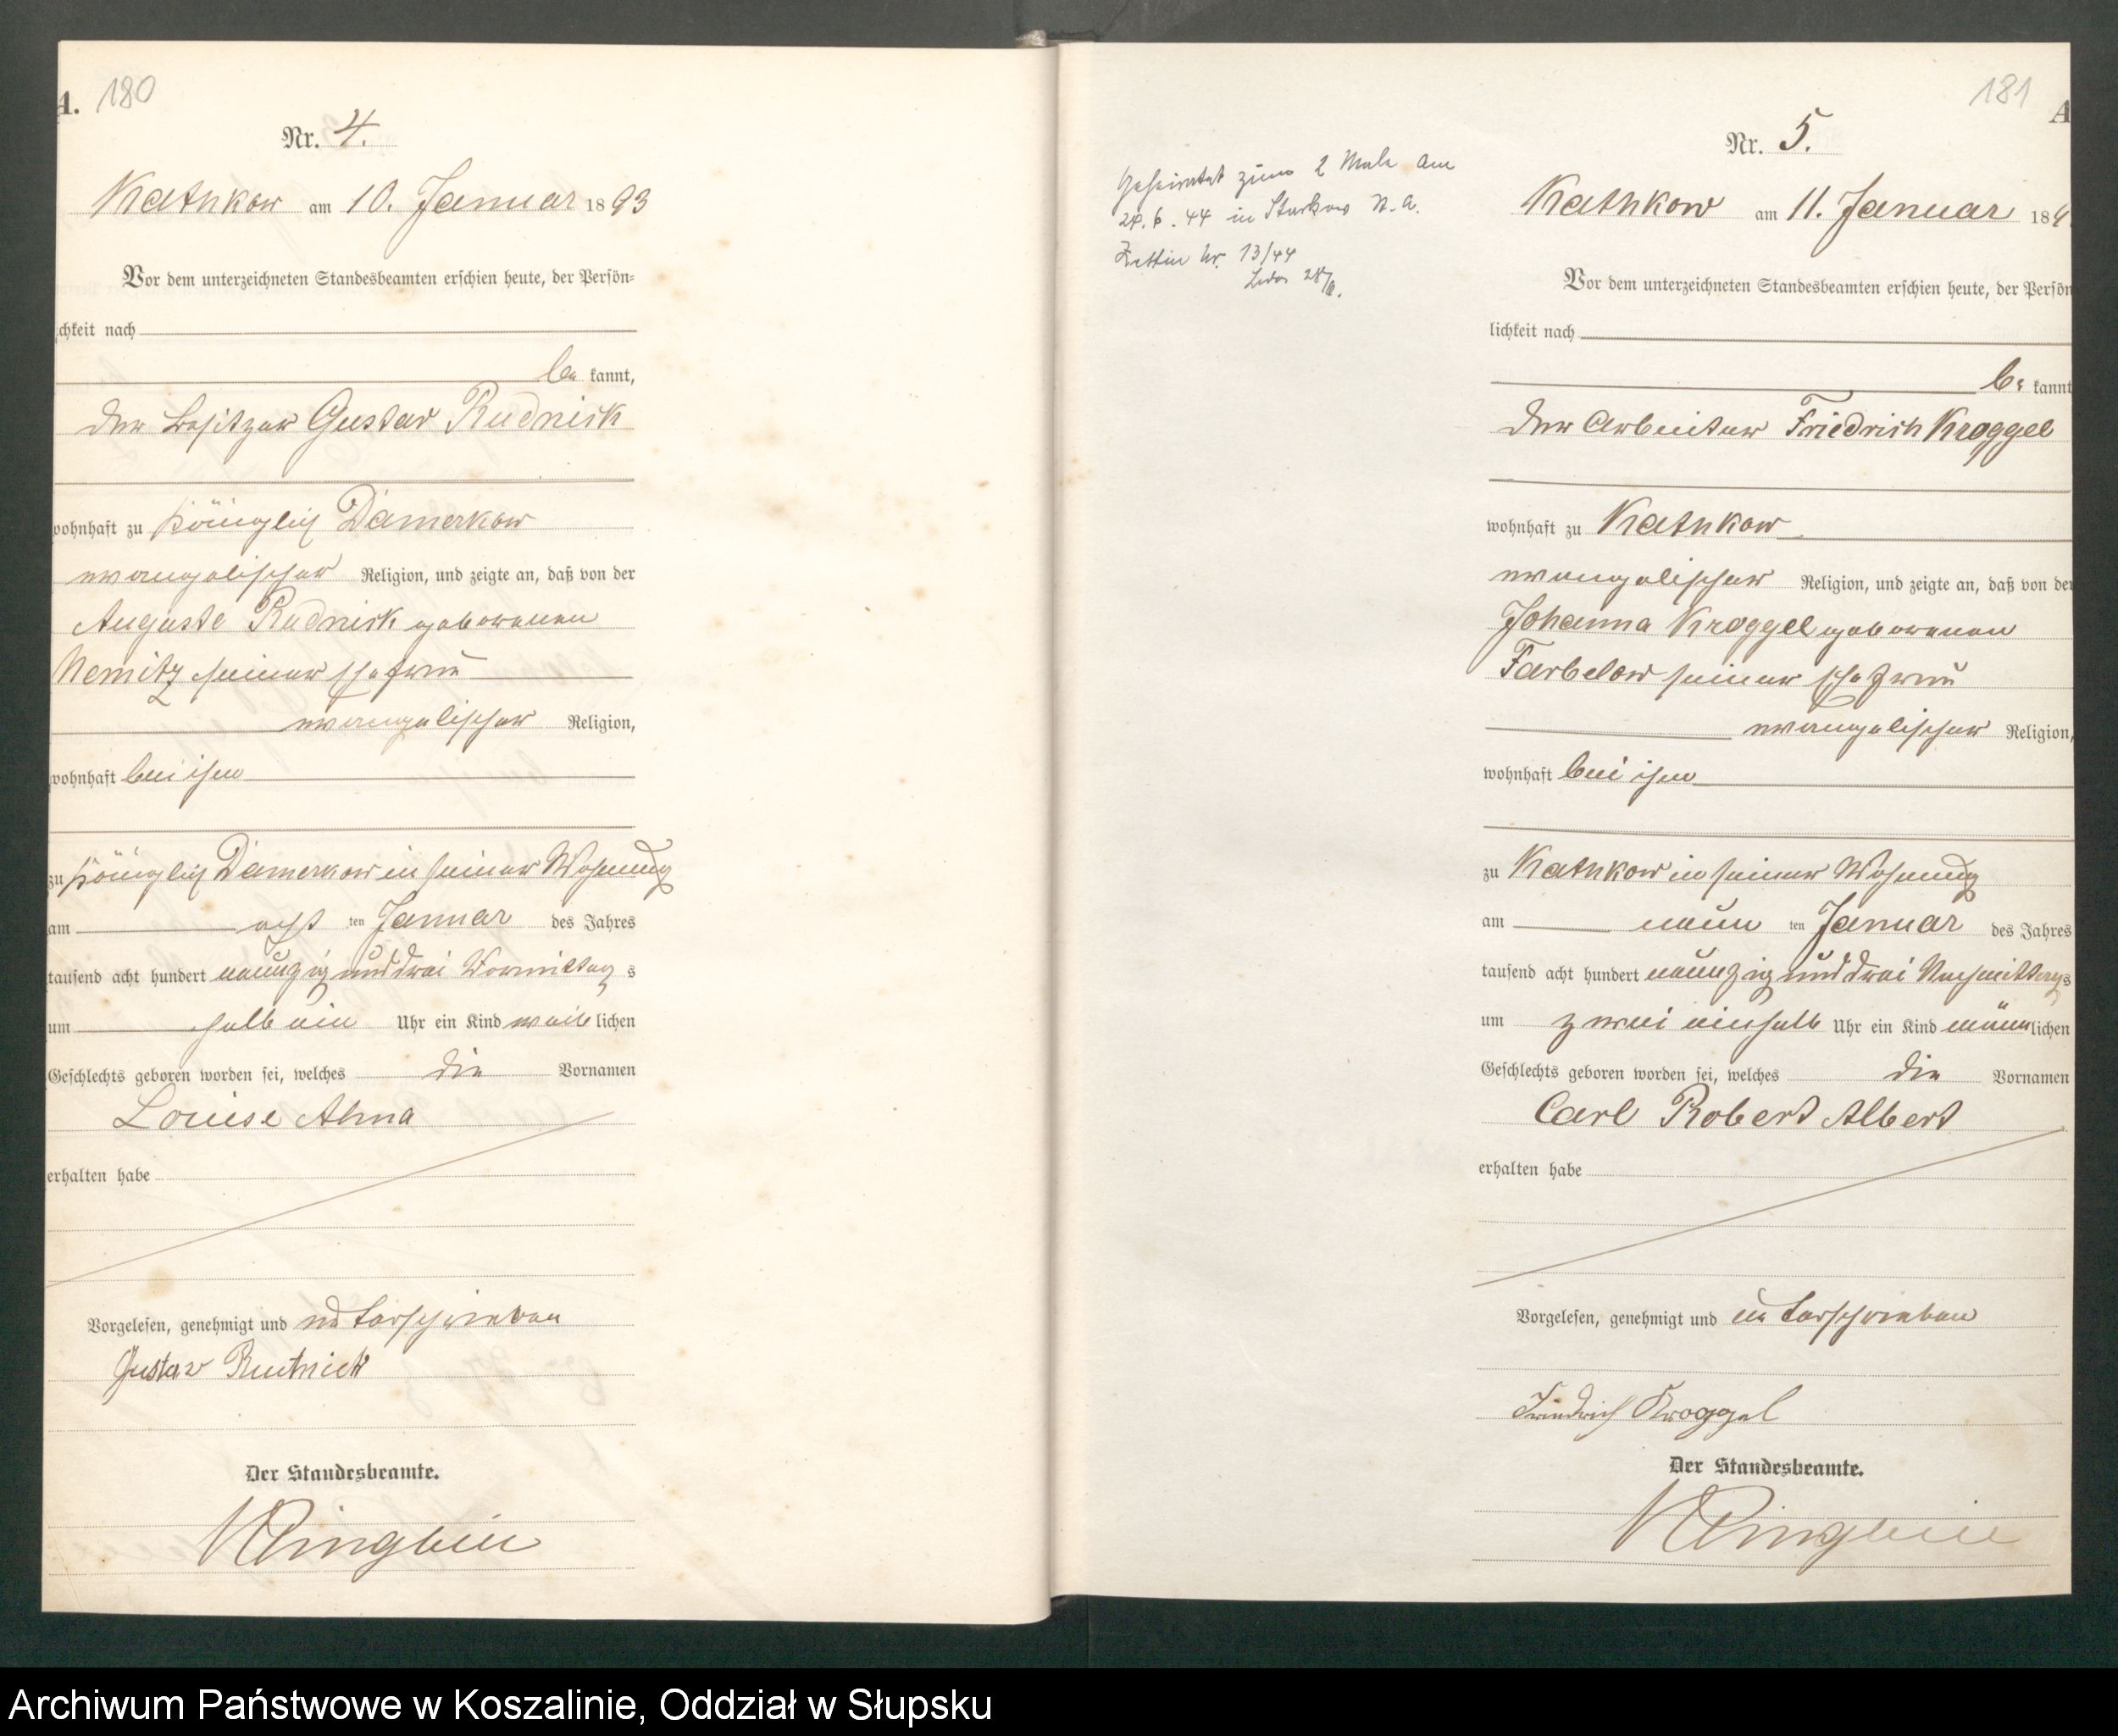 A. 180
Nr. 4.
Kathkow am 10. Januar 1893
Vor dem unterzeichneten Standesbeamten erschien heute, der Persön=
chkeit nach
be kannt,
der Besitzer Gustav Rudnick
wohnhaft zu Königlich Damerkow
evangelischer Religion, und zeigte an, daß von der
Auguste Rudnick geborenen
Nemitz seiner Ehefrau
evangelischer Religion,
wohnhaft bei ihm
zu Königlich Damerkow in seiner Wohnung
am acht ten Januar des Jahres
tausend acht hundert neunzig und drei Vormittag s
um halb ein Uhr ein Kind weib lichen
Geschlechts geboren worden sei, welches die Vornamen
Louise Alma
erhalten habe
Vorgelesen, genehmigt und unterschrieben
Gustav Rutnick
Der Standesbeamte.
181 A
Nr. 5.
Geheiratet zum 2 Male am
in N. A.
Nr. 13/44
Kathkow am 11. Januar 189
Vor dem unterzeichneten Standesbeamten erschien heute, der Persön
lichkeit nach
be kannt
der Arbeiter Friedrich Kroggel
wohnhaft zu Kathkow
evangelischer Religion, und zeigte an, daß von der
Johanna Kroggel geborenen
Farbelow seiner Ehefrau
evangelischer Religion,
wohnhaft bei ihm
zu Kathkow in seiner Wohnung
am neun ten Januar des Jahres
tausend acht hundert neunzig und drei Nachmittags
um zwei einhalb Uhr ein Kind männlichen
Geschlechts geboren worden sei, welches die Vornamen
Carl Robert Albert
erhalten habe
Vorgelesen, genehmigt und unterschrieben
Friedrich Kroggel
Der Standesbeamte.
Archiwum Państwowe w Koszalinie, Oddział w Słupsku